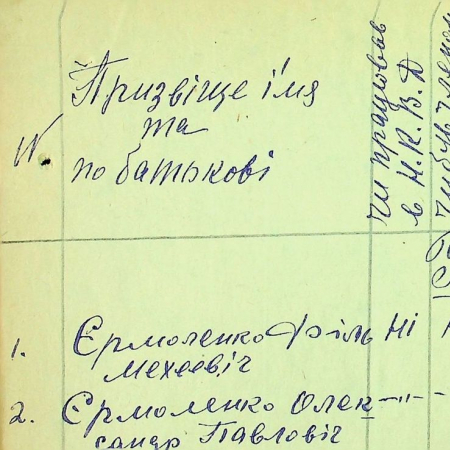 № Призвіще і імя
та
по батькові
чи працював
в Н.К.В.Д
чи був членом
1. Єрмоленко Філь Ні
Мехеєвіч
2. Єрмоленко Олек- –"–
сандр Павловіч